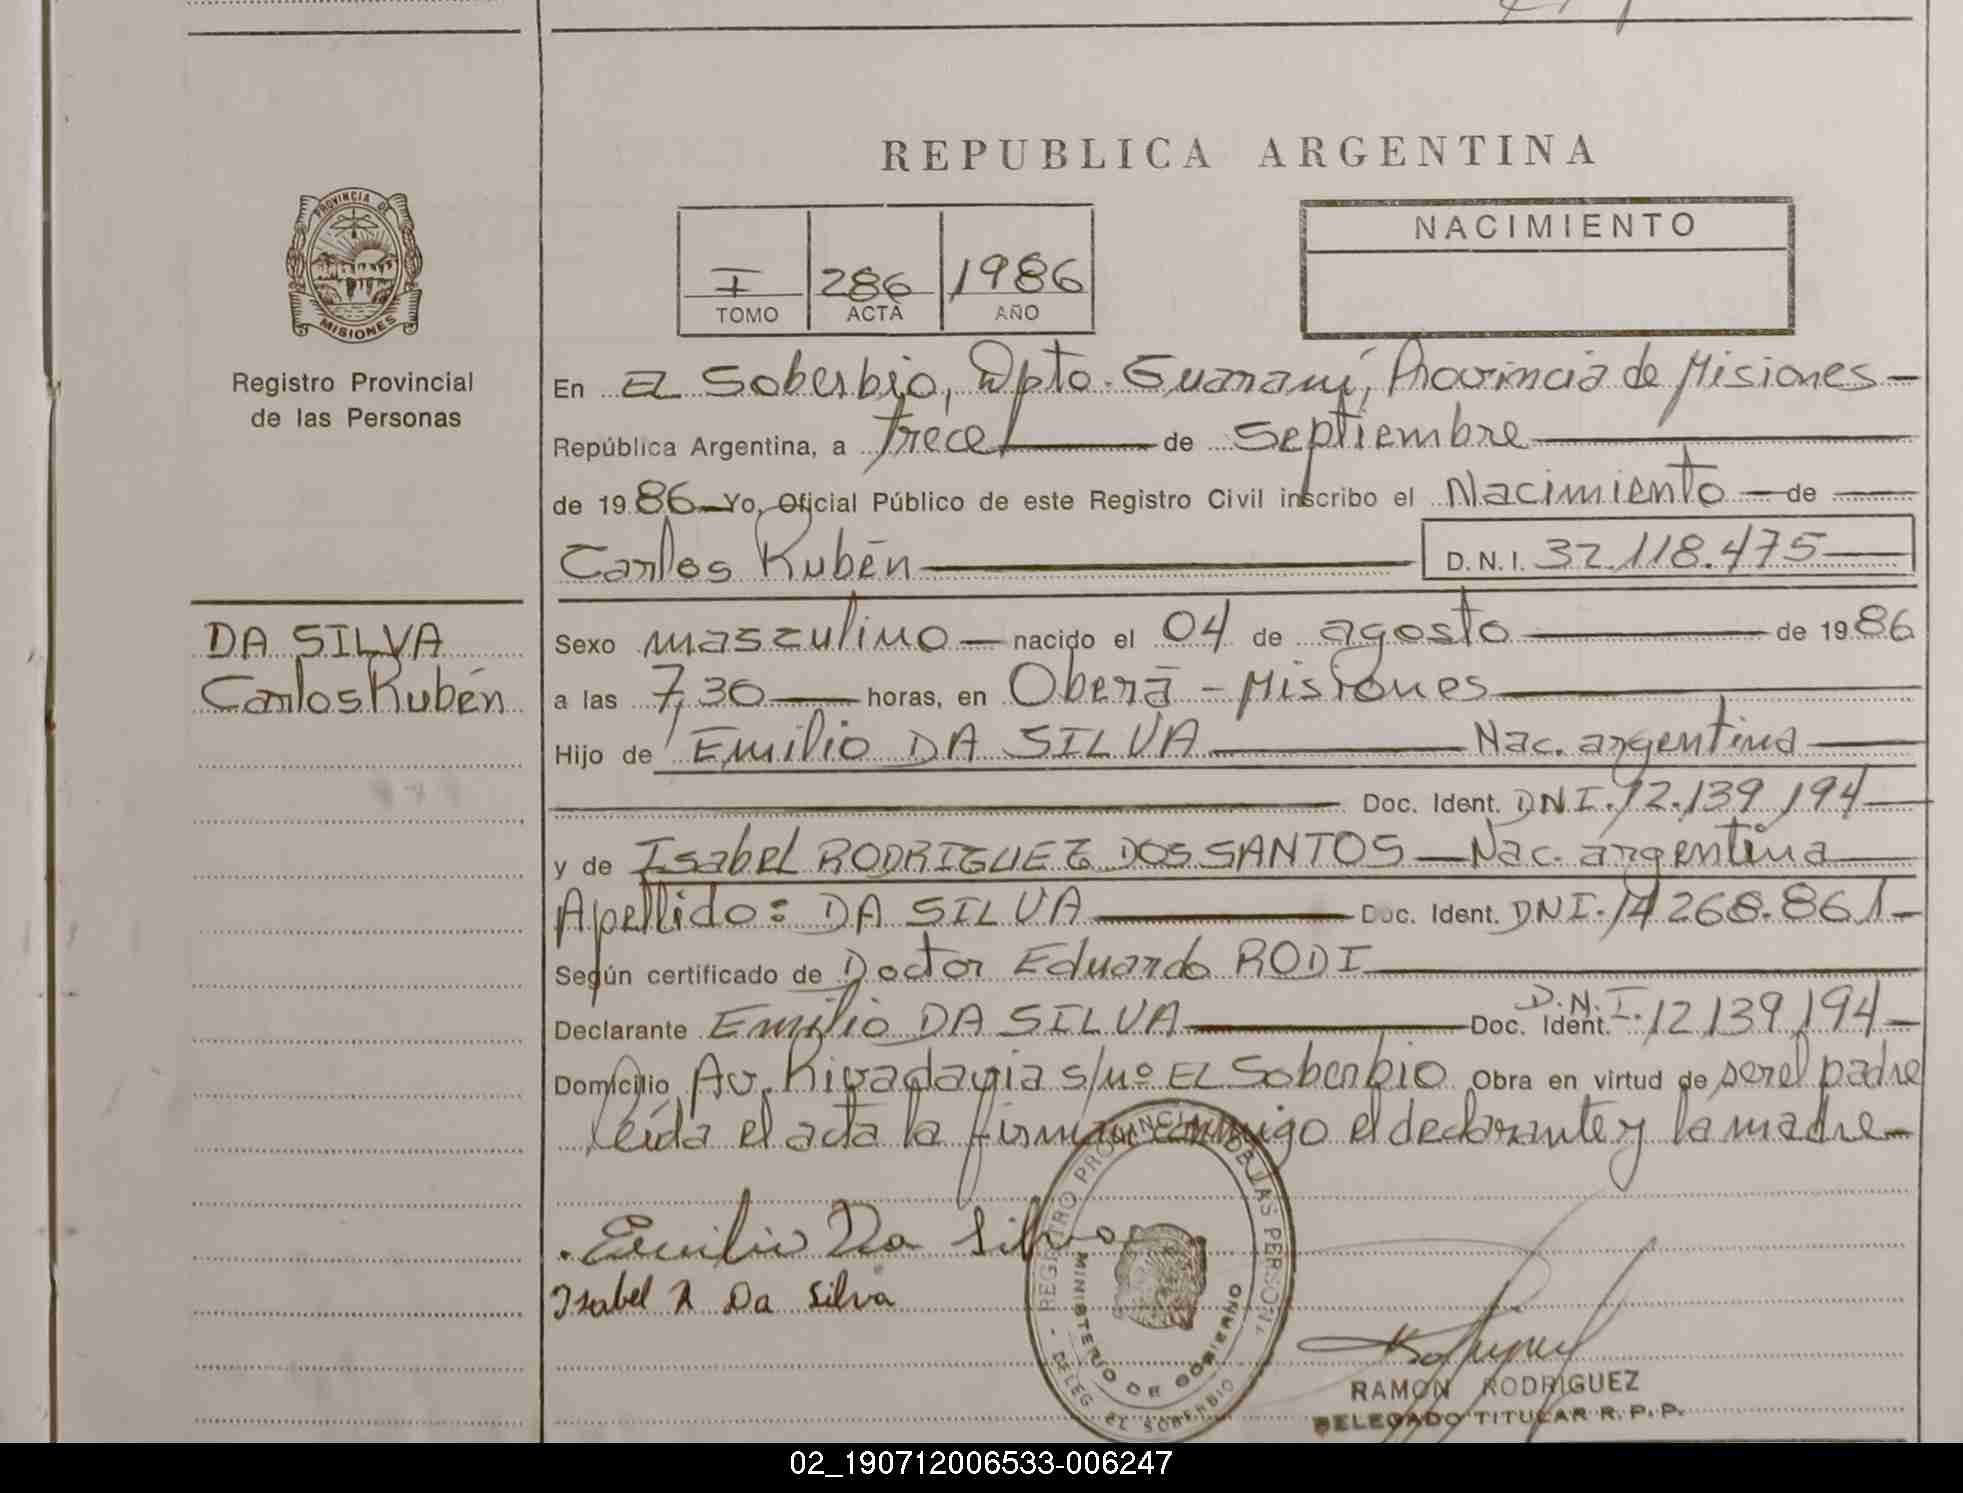 REPUBLICA ARGENTINA
PROVINCIA DE
MISIONES
Registro Provincial
de las Personas
I 286 1986
TOMO ACTA AÑO
NACIMIENTO
En El Soberbio, Dpto. Guaraní, Provincia de Misiones
República Argentina, a trece de Septiembre
de 1986 Yo, Oficial Público de este Registro Civil inscribo el Nacimiento de
Carlos Rubén D.N.I. 32.118.475
DA SILVA
Carlos Rubén
Sexo masculino nacido el 04 de agosto de 1986
a las 7,30 horas, en Oberá - Misiones
Hijo de Emilio DA SILVA Nac. argentina
Doc. Ident. DNI. 12.139.194
y de Isabel RODRIGUEZ DOS SANTOS Nac. argentina
Apellido: DA SILVA Doc. Ident. DNI. 14.268.861
Según certificado de Doctor Eduardo RODI
Declarante Emilio DA SILVA Doc. Ident. D.N.I. 12.139.194
Domicilio Av. Rivadavia s/nº El Soberbio Obra en virtud de ser el padre
leída el acta la firman conmigo el declarante y la madre
Emilio Da Silva
Isabel R Da Silva
REGISTRO PROVINCIAL DE LAS PERSONAS
MINISTERIO DE GOBIERNO
DELEG. EL SOBERBIO
RAMON RODRIGUEZ
DELEGADO TITULAR R.P.P.
02_190712006533-006247